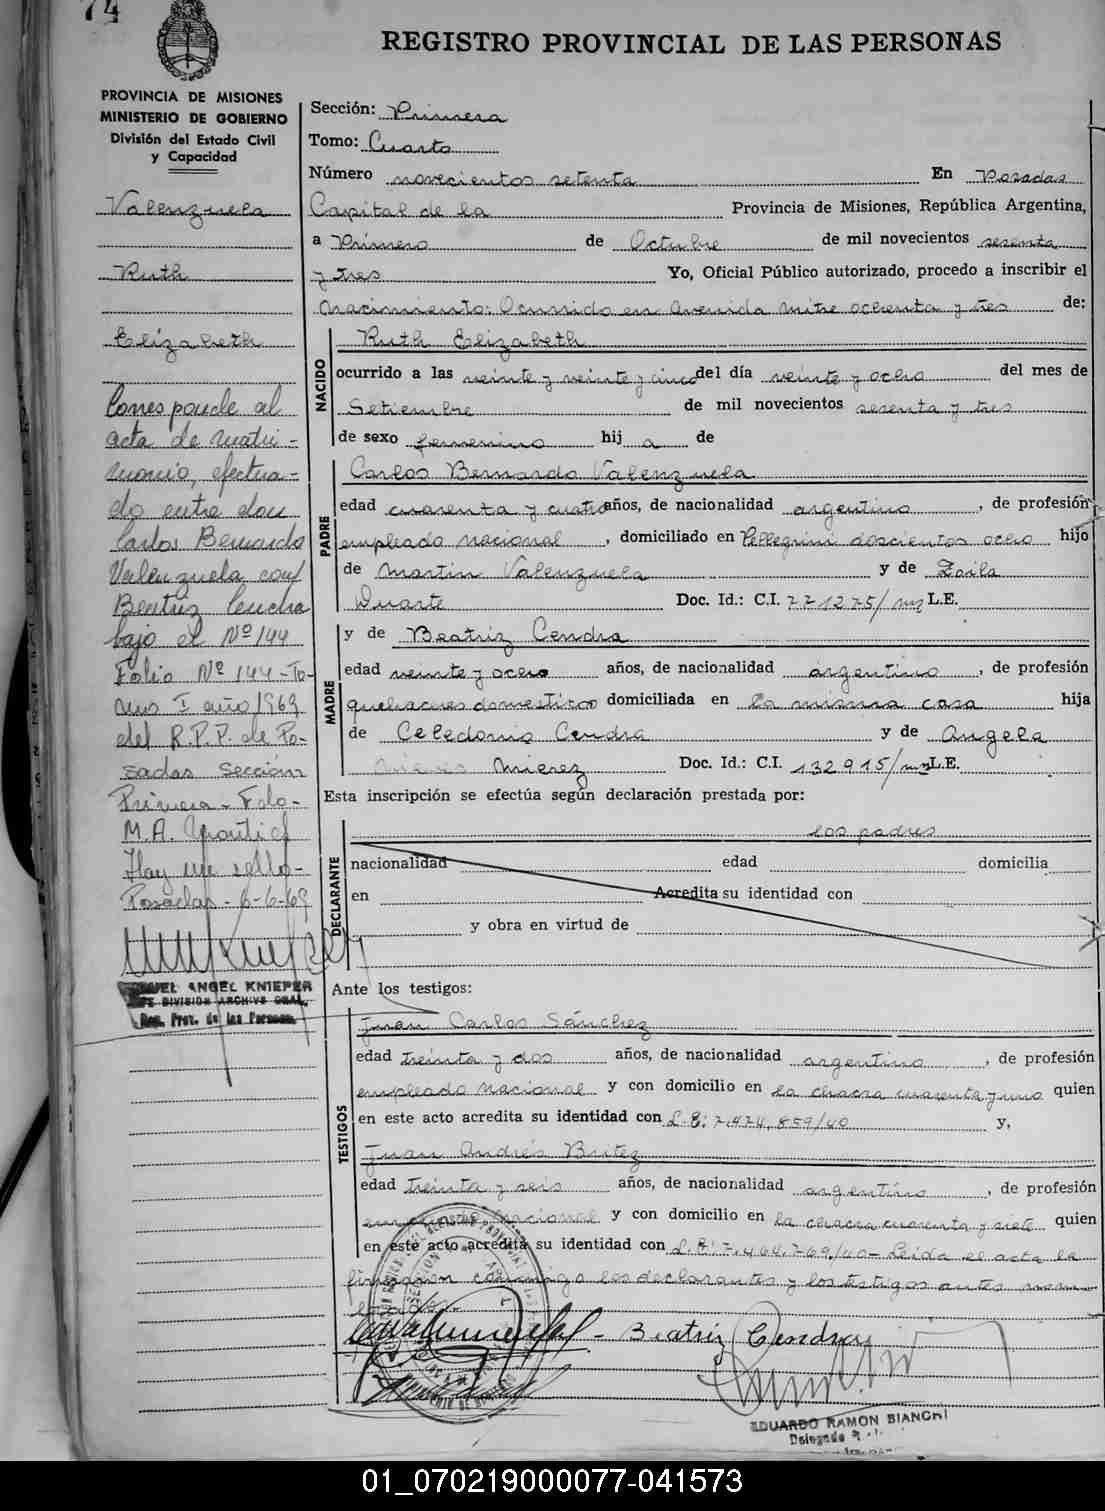 74
REGISTRO PROVINCIAL DE LAS PERSONAS
PROVINCIA DE MISIONES
MINISTERIO DE GOBIERNO
División del Estado Civil
y Capacidad
Valenzuela
Ruth
Elizabeth
Corresponde al
acta de matri-
monio, efectua-
do entre don
Carlos Bernardo
Valenzuela con
Beatriz Cendra
bajo el Nº 144
Folio Nº 144-To-
mo I año 1969
del R.P.P. de Po-
sadas Sección
Primera - Fdo-
M.A.
Hay un sello-
Posadas - 6-6-69
ANGEL KNIEPER
DIVISION ARCHIVO GRAL.
Reg. Prov. de las Personas
Sección: Primera
Tomo: Cuarto
Número novecientos setenta En Posadas
Capital de la Provincia de Misiones, República Argentina,
a Primero de Octubre de mil novecientos sesenta
y tres Yo, Oficial Público autorizado, procedo a inscribir el
Nacimiento: Ocurrido en Avenida Mitre ochenta y tres de:
NACIDO
Ruth Elizabeth
ocurrido a las veinte y veinte y cinco del día veinte y ocho del mes de
Setiembre de mil novecientos sesenta y tres
de sexo femenino hij a de
PADRE
Carlos Bernardo Valenzuela
edad cuarenta y cuatro años, de nacionalidad argentino, de profesión
empleado nacional, domiciliado en Pellegrini doscientos ocho hijo
de Martin Valenzuela y de Zoila
Duarte Doc. Id.: C.I. 221275/mz L.E.
MADRE
y de Beatriz Cendra
edad veinte y ocho años, de nacionalidad argentino, de profesión
quehaceres domestico domiciliada en la misma casa hija
de Celedonio Cendra y de Angela
Mierez Doc. Id.: C.I. 132915/mz L.E.
Esta inscripción se efectúa según declaración prestada por:
DECLARANTE
los padres
nacionalidad edad domicilia
en Acredita su identidad con
y obra en virtud de
Ante los testigos:
TESTIGOS
Juan Carlos Sánchez
edad treinta y dos años, de nacionalidad argentino, de profesión
empleado nacional y con domicilio en la chacra cuarenta y uno quien
en este acto acredita su identidad con L.E: 7.474.859/40 y,
Juan Andrés Britez
edad treinta y seis años, de nacionalidad argentino, de profesión
empleado nacional y con domicilio en la chacra cuarenta y siete quien
en este acto acredita su identidad con L.E: 7.464.769/40- Leida el acta la
firmaron conmigo los declarantes y los testigos antes nom
Beatriz Cendra
EDUARDO RAMON BIANCHI
Delegado
01_070219000077-041573